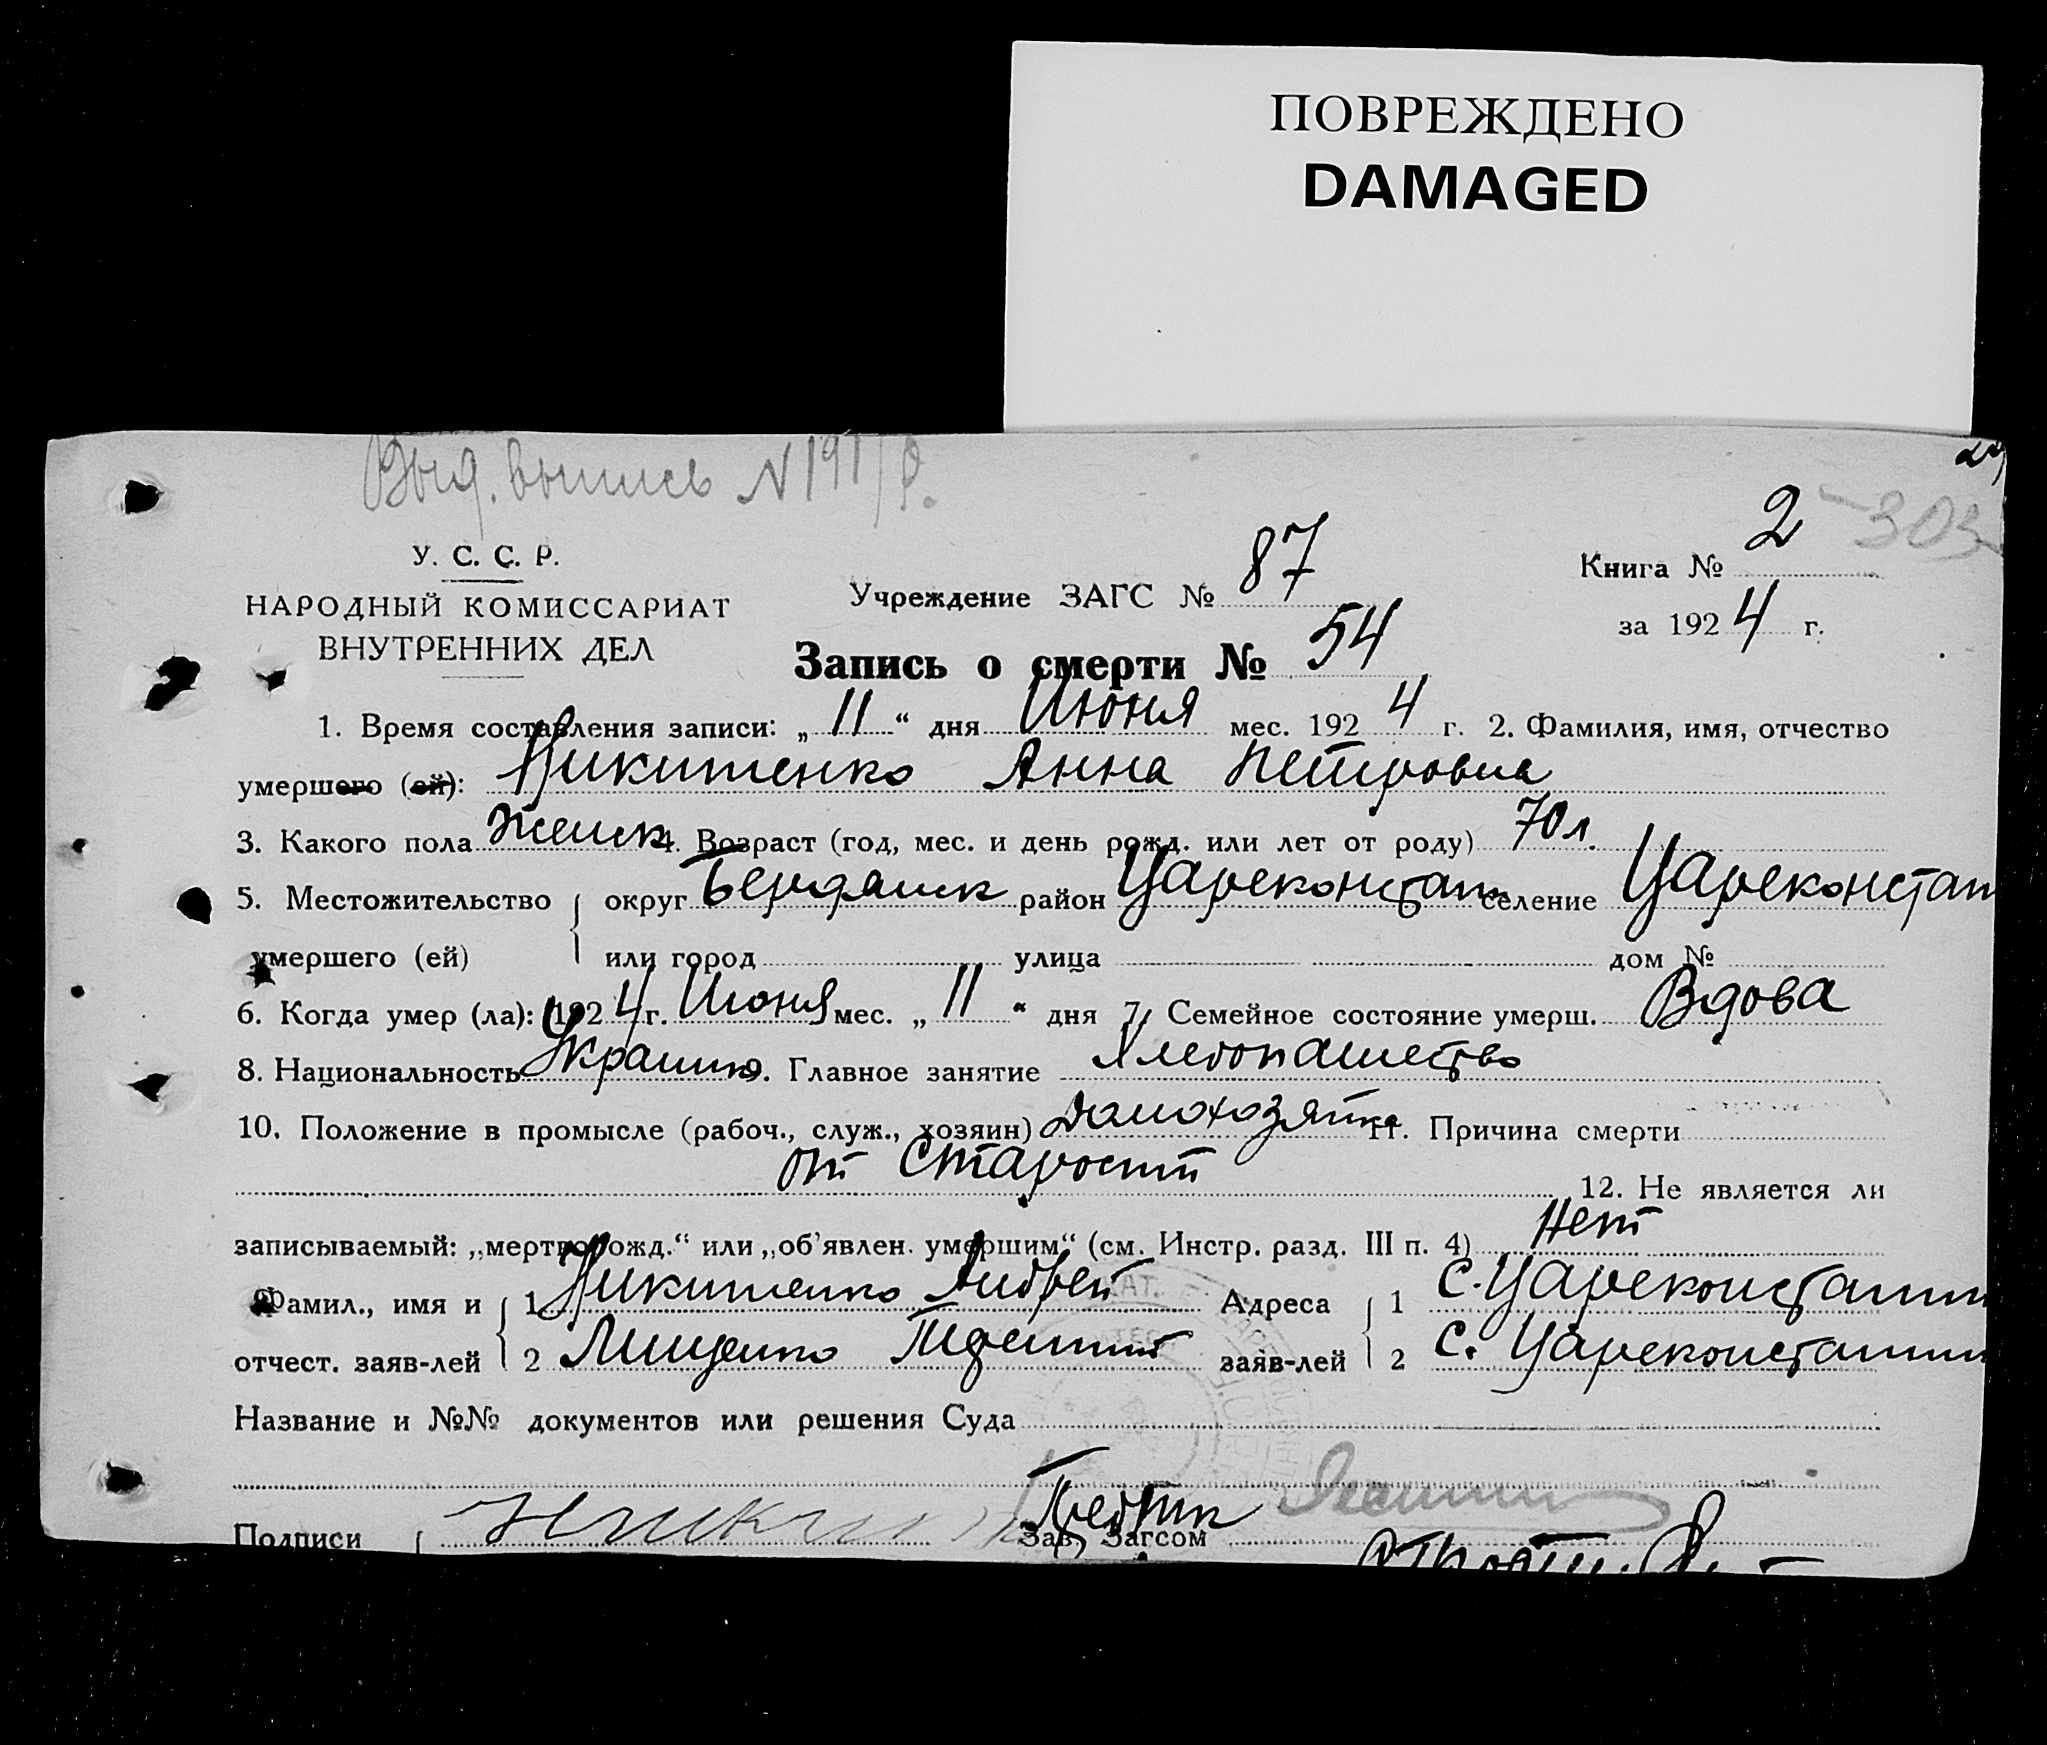 ПОВРЕЖДЕНО
DAMAGED
Выд. выпись N 191/
2 303
У. С. С. Р.
НАРОДНЫЙ КОМИССАРИАТ
ВНУТРЕННИХ ДЕЛ
Учреждение ЗАГС № 87
Книга № 2
за 1924 г.
Запись о смерти № 54
1. Время составления записи: „11“ дня Июня мес. 1924 г. 2. Фамилия, имя, отчество
умершего (ей): Никитенко Анна Петровна
3. Какого пола женск 4. Возраст (год, мес. и день рожд. или лет от роду) 70 л.
5. Местожительство округ Бердянск район Цареконстан селение Цареконстан
умершего (ей) или город улица дом №
6. Когда умер (ла): 1924 г. Июня мес. „11“ дня 7. Семейное состояние умерш. Вдова
8. Национальность Украин 9. Главное занятие Хлебопашество
10. Положение в промысле (рабоч., служ., хозяин) Домохозяйка 11. Причина смерти
от Старости 12. Не является ли
записываемый: „мертворожд.“ или „об'явлен. умершим“ (см. Инстр. разд. III п. 4) Нет
Фамил., имя и 1 Никитенко Андрей Адреса 1 С. Цареконстантин
отчест. заяв-лей 2 Мищенко заяв-лей 2 С. Цареконстантин
Название и №№ документов или решения Суда
Подписи Зав. Загсом